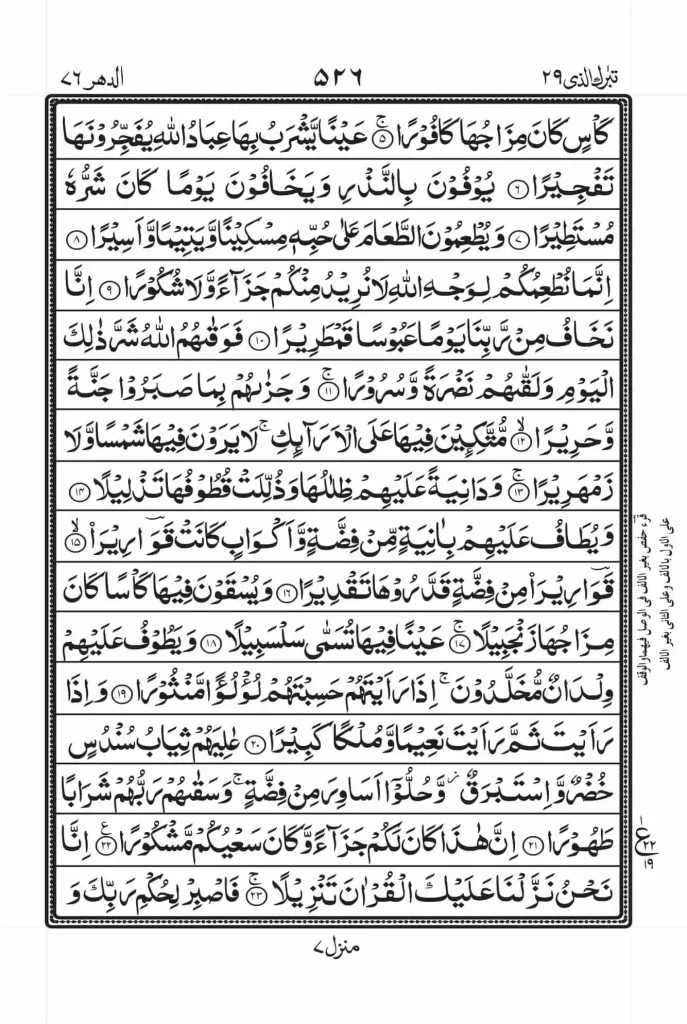 تبرك الذى ٢٩
۵۲۶
الدهر ۷۶
كَاۡسٍ كَانَ مِزَاجُهَا كَافُوۡرًا ۚ‏﴿۵﴾ عَيۡنًا يَّشۡرَبُ بِهَا عِبَادُ اللّٰهِ يُفَجِّرُوۡنَهَا
تَفۡجِيۡرًا ﴿۶﴾ يُوۡفُوۡنَ بِالنَّذۡرِ وَيَخَافُوۡنَ يَوۡمًا كَانَ شَرُّهٗ
مُسۡتَطِيۡرًا ﴿۷﴾ وَيُطۡعِمُوۡنَ الطَّعَامَ عَلٰى حُبِّهٖ مِسۡكِيۡنًا وَّيَتِيۡمًا وَّاَسِيۡرًا ﴿۸﴾
اِنَّمَا نُطۡعِمُكُمۡ لِوَجۡهِ اللّٰهِ لَا نُرِيۡدُ مِنۡكُمۡ جَزَآءً وَّلَا شُكُوۡرًا ﴿۹﴾ اِنَّا
نَخَافُ مِنۡ رَّبِّنَا يَوۡمًا عَبُوۡسًا قَمۡطَرِيۡرًا ﴿۱۰﴾ فَوَقٰٮهُمُ اللّٰهُ شَرَّ ذٰلِكَ
الۡيَوۡمِ وَلَقّٰٮهُمۡ نَضۡرَةً وَّسُرُوۡرًا ۚ‏﴿۱۱﴾ وَجَزٰٮهُمۡ بِمَا صَبَرُوۡا جَنَّةً
وَّحَرِيۡرًا ۙ‏﴿۱۲﴾ مُّتَّكِـِٕيۡنَ فِيۡهَا عَلَى الۡاَرَآٮِٕكِ‌ۚ لَا يَرَوۡنَ فِيۡهَا شَمۡسًا وَّلَا
زَمۡهَرِيۡرًا ۚ‏﴿۱۳﴾ وَدَانِيَةً عَلَيۡهِمۡ ظِلٰلُهَا وَذُلِّلَتۡ قُطُوۡفُهَا تَذۡلِيۡلًا ﴿۱۴﴾
وَيُطَافُ عَلَيۡهِمۡ بِاٰنِيَةٍ مِّنۡ فِضَّةٍ وَّاَكۡوَابٍ كَانَتۡ قَوَارِيۡرَا۟ ۙ‏﴿۱۵﴾
قَوَارِيۡرَا۟ مِنۡ فِضَّةٍ قَدَّرُوۡهَا تَقۡدِيۡرًا ﴿۱۶﴾ وَيُسۡقَوۡنَ فِيۡهَا كَاۡسًا كَانَ
مِزَاجُهَا زَنۡجَبِيۡلًا ۚ‏﴿۱۷﴾ عَيۡنًا فِيۡهَا تُسَمّٰى سَلۡسَبِيۡلًا ﴿۱۸﴾ وَيَطُوۡفُ عَلَيۡهِمۡ
وِلۡدَانٌ مُّخَلَّدُوۡنَ‌ۚ اِذَا رَاَيۡتَهُمۡ حَسِبۡتَهُمۡ لُـؤۡلُـؤًا مَّنۡثُوۡرًا ﴿۱۹﴾ وَاِذَا
رَاَيۡتَ ثَمَّ رَاَيۡتَ نَعِيۡمًا وَّمُلۡكًا كَبِيۡرًا ﴿۲۰﴾ عٰلِيَهُمۡ ثِيَابُ سُنۡدُسٍ
خُضۡرٌ وَّاِسۡتَبۡرَقٌ وَّحُلُّوۡۤا اَسَاوِرَ مِنۡ فِضَّةٍ ۚ وَسَقٰٮهُمۡ رَبُّهُمۡ شَرَابًا
طَهُوۡرًا ﴿۲۱﴾ اِنَّ هٰذَا كَانَ لَـكُمۡ جَزَآءً وَّكَانَ سَعۡيُكُمۡ مَّشۡكُوۡرًا ﴿۲۲﴾ اِنَّا
نَحۡنُ نَزَّلۡنَا عَلَيۡكَ الۡقُرۡاٰنَ تَنۡزِيۡلًا ۚ‏﴿۲۳﴾ فَاصۡبِرۡ لِحُكۡمِ رَبِّكَ وَ
قرء حفص بغير الالف فى الوصل فيهما والوقف
على الاول بالالف وعلى الثانى بغير الالف
ع
منزل ۷